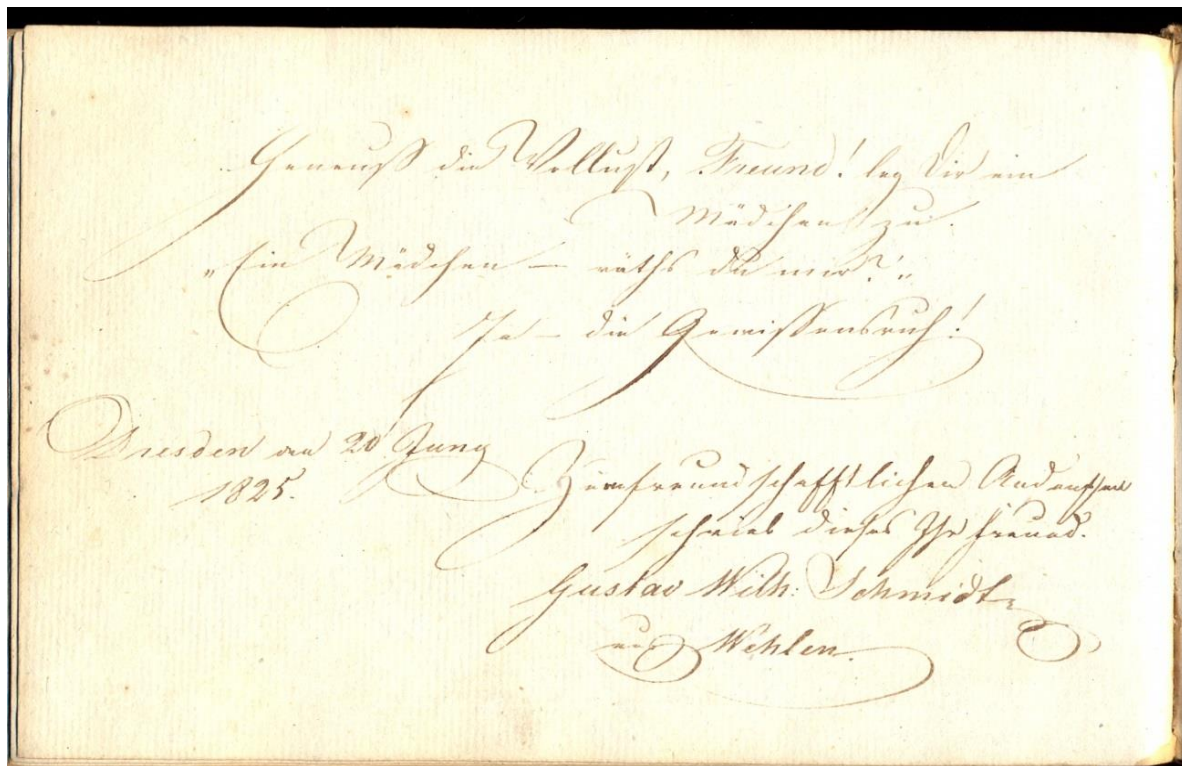 Geneuß die Wollust, Freund! leg Dir ein
Mädchen zu.
„Ein Mädchen — räths du mir?“
Ja — die Gewissensruh!
Dresden am 20 Juny
1825.
Zum freundschafftlichen Andenken
schrieb dieses Ihr Freund.
Gustav Wilh: Schmidt
aus Wehlen.